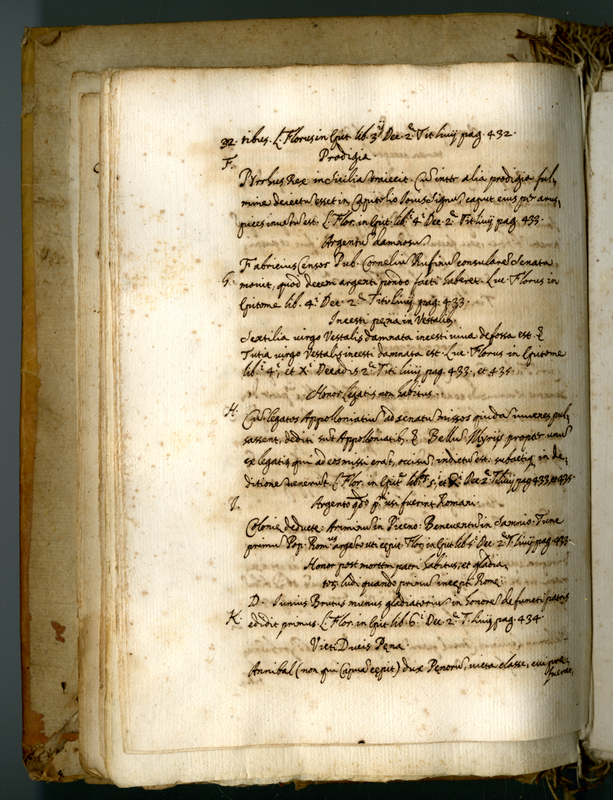 32. tibus. L. Florus in Epit. lib. 3. Dec. 2. Tit. Liuij pag. 432.
Prodigia
F. Pyrrhus Rex in Sicilia traiecit. Cu inter alia prodigia ful,
mine deiectu esset in Capitolio Iouis signu, caput eius per arus,
pices inuetu est. L. Flor. in Epit. lib. 4. Dec. 2. Tit. Liuij pag. 433.
Argentu damnosu
Fabricius Censor Pub. Corneliu Rufinu consulare Senatu
G. mouit, quod decem argenti pondo facti haberet. Luc. Florus in
Epitome lib. 4. Dec. 2. Titi Liuij pag. 433.
Incesti pena in Vestalis
Sextilia uirgo Vestalis damnata incesti uiua defossa est. &
Tutia uirgo Vestalis incesti damnata est. Luc. Florus in Epitome
lib. 4, et X. Decadis 2. Titi Liuij pag. 433, et 435.
Honor Legatis non habitus.
H. Cu legatos Appolloniatiu ad senatu missos quida iuuenes pul,
sassent, dediti sut Appolloniatib. & Bellu Illyrijs propter unu
ex legatis qui ad eos missi erat, occisu, indictu est: subactiq in de,
ditione uenerut. L. Flor. in Epit. lib. 5, et Dec. 2. T. Liuij pag. 433 et 435
I. Argento qdo pu usi fuerint Romani.
Colonie deducte: Ariminu in Piceno: Beneuentu in Samnio. Tunc
primu Pop. Romus argeto uti cepit. Flor. in Epit. lib. 5. Dec. 2. T. Liuij pag. 433
Honor post mortem patri habitus, et gladia,
torij ludi quando primu incepti Rome.
D. Iunius Brutus munus gladiatoriu in honore defuncti patris
K. edidit primus. L. Flor. in Epit. lib. 6. Dec. 2. T. Liuij pag. 434
Victi Ducis Pena.
Annibal (non qui Capua cepit) dux Penoru, uicta classe, cui pre,
fuerat,